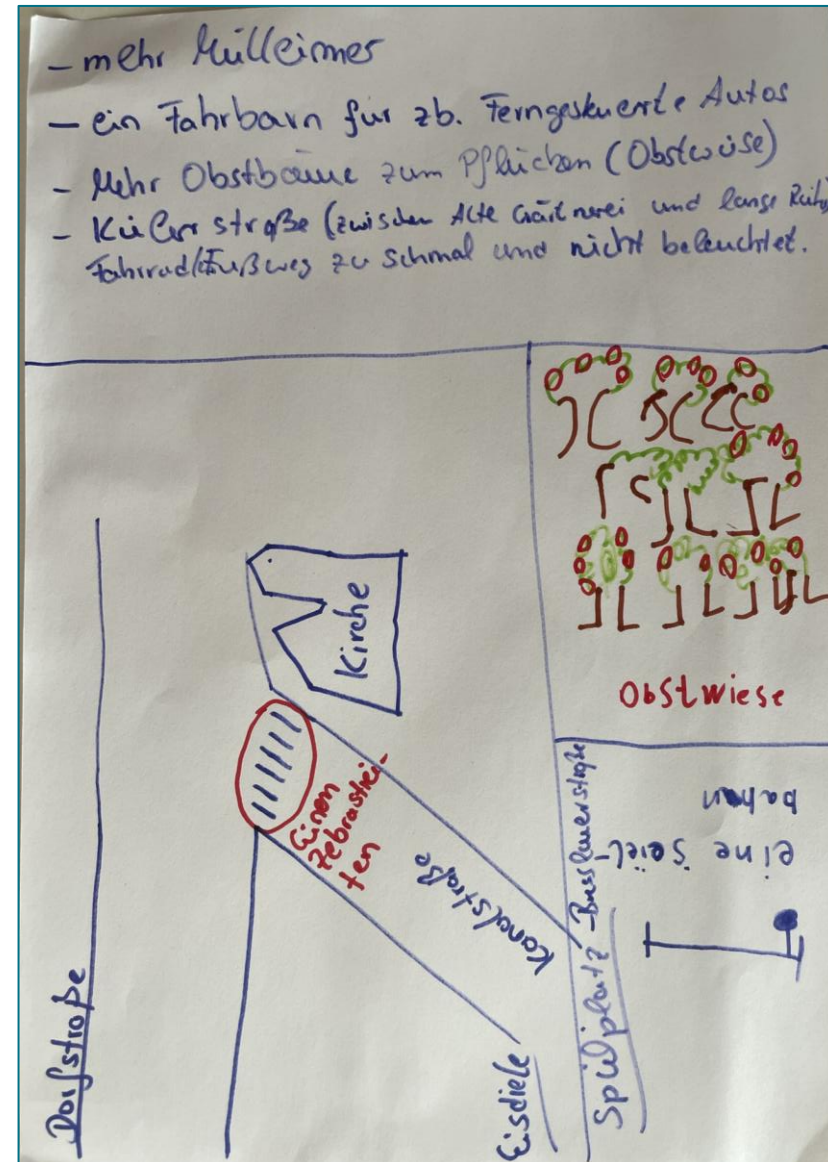 - mehr Mülleimer
- ein Fahrbarn für zb. Ferngesteuerte Autos
- Mehr Obstbäume zum Pflücken (Obstwise)
- Kieler straße (zwischen Alte Gärtnerei und lange Reihe)
Fahrrad/Fußweg zu schmal und nicht beleuchtet.
Kirche
Obstwiese
Einen
Zebrastrei-
ten
Kanalstraße
Breslauerstraße
eine Seiel-
bahn
Spielplatz
Eisdiele
Dorfstraße